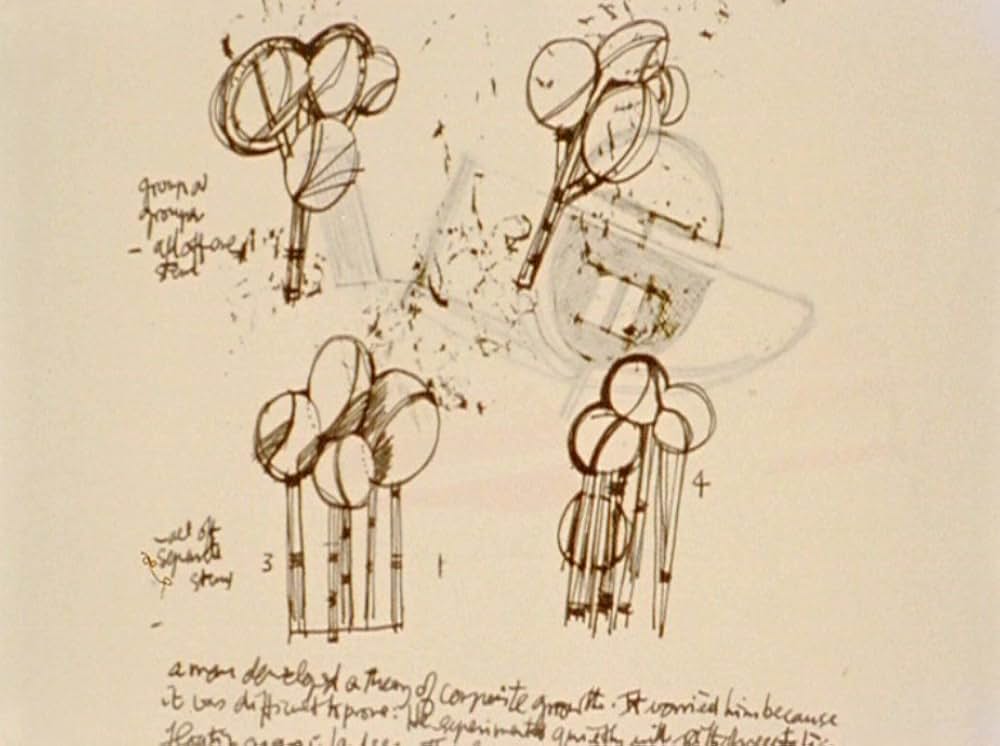 group of
groups
- all off one
stem
- all off
separate
stems
3
1
4
a man developed a theory of composite growth. It worried him because
it was difficult to prove. He experimented quietly with
floating